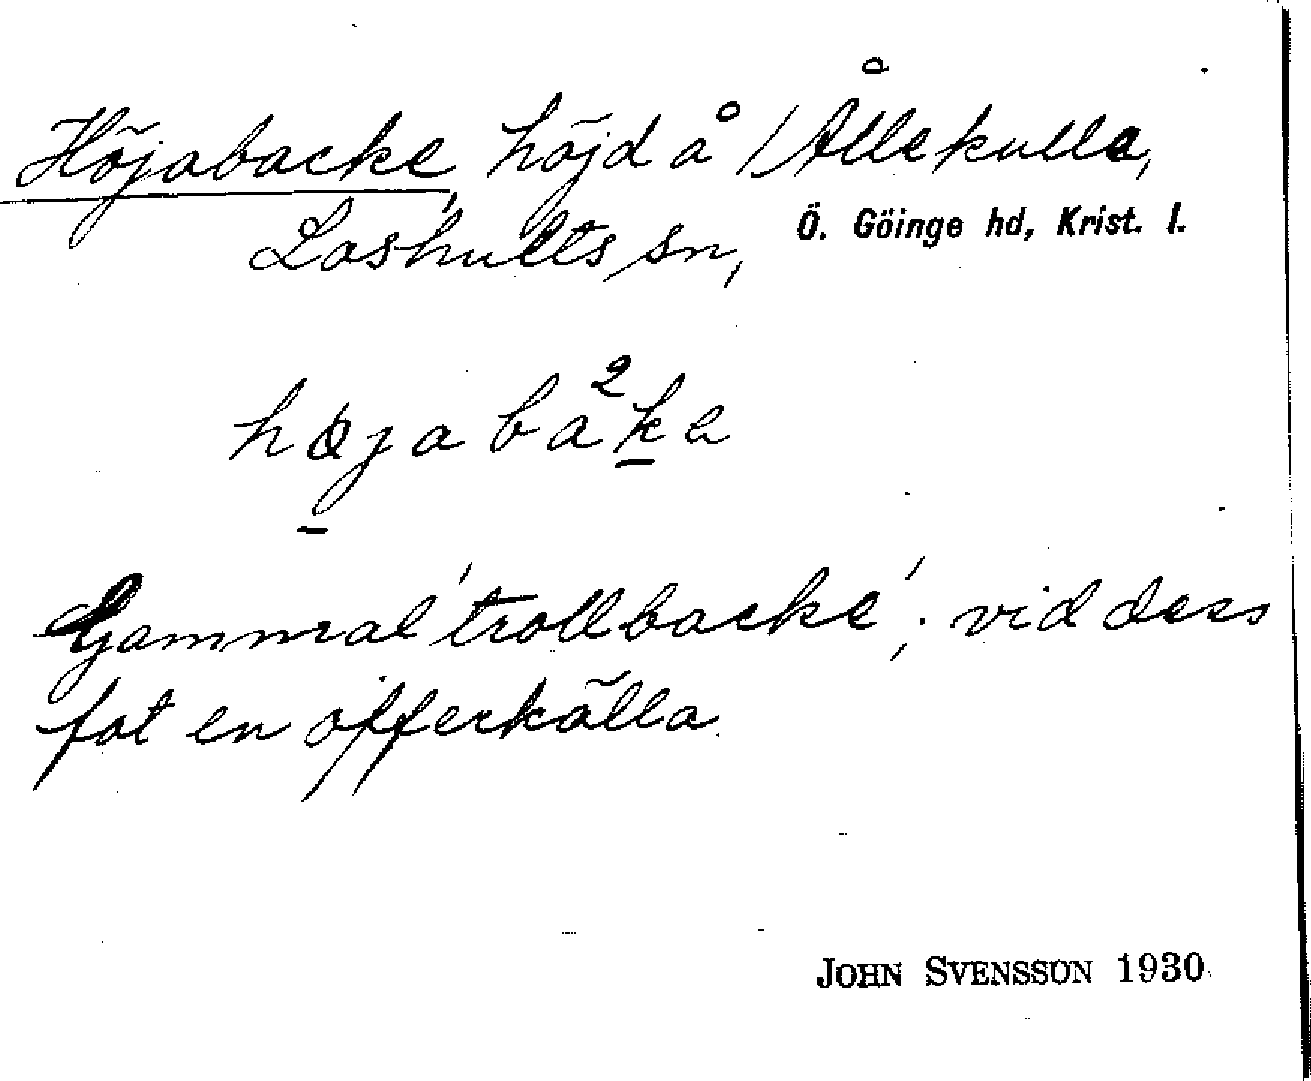 Höjabacke, höjd å Ållekulla,
Loshults sn, Ö. Göinge hd, Krist. l.
högabạ²ke
Gammal 'trollbacke'; vid dess
fot en offerkälla.
JOHN SVENSSON 1930